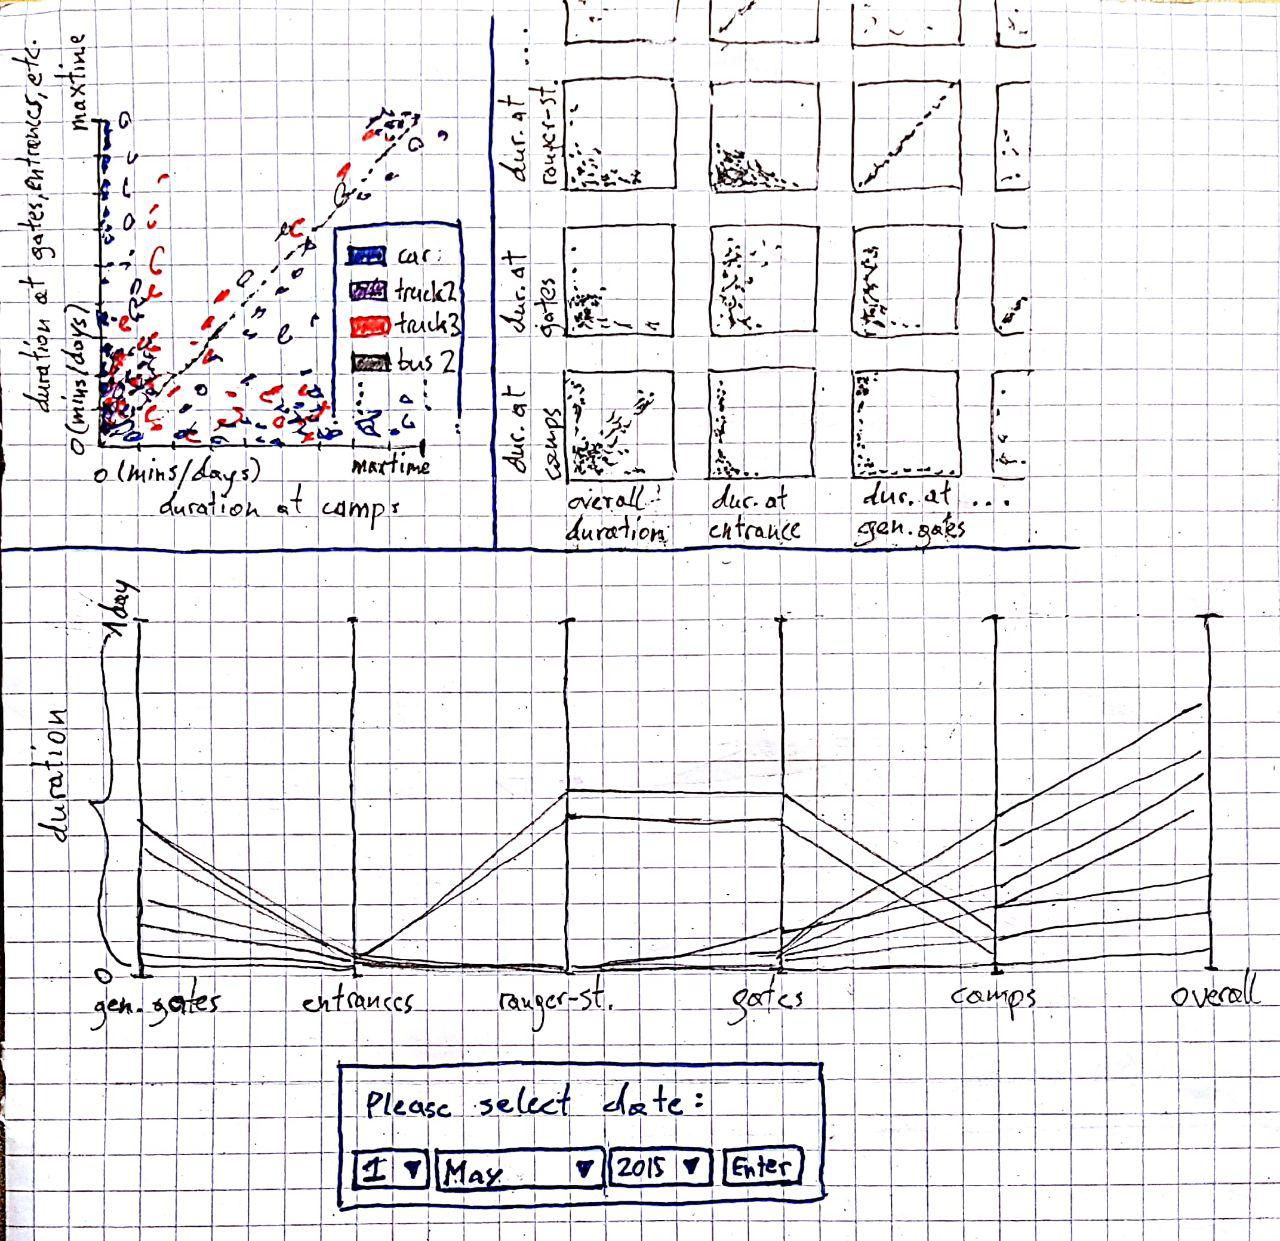 maxtime
duration at gates, entrances, etc.
0 (mins/days)
car
truck2
truck3
bus 2
0 (mins/days)
maxtime
duration at camps
...
dur. at
ranger-st.
dur. at
gates
dur. at
camps
overall
duration
dur. at
entrance
dur. at
gen. gates
...
1 day
duration
0
gen. gates
entrances
ranger-st.
gates
camps
overall
Please select date:
1 ▼ May ▼ 2015 ▼ Enter